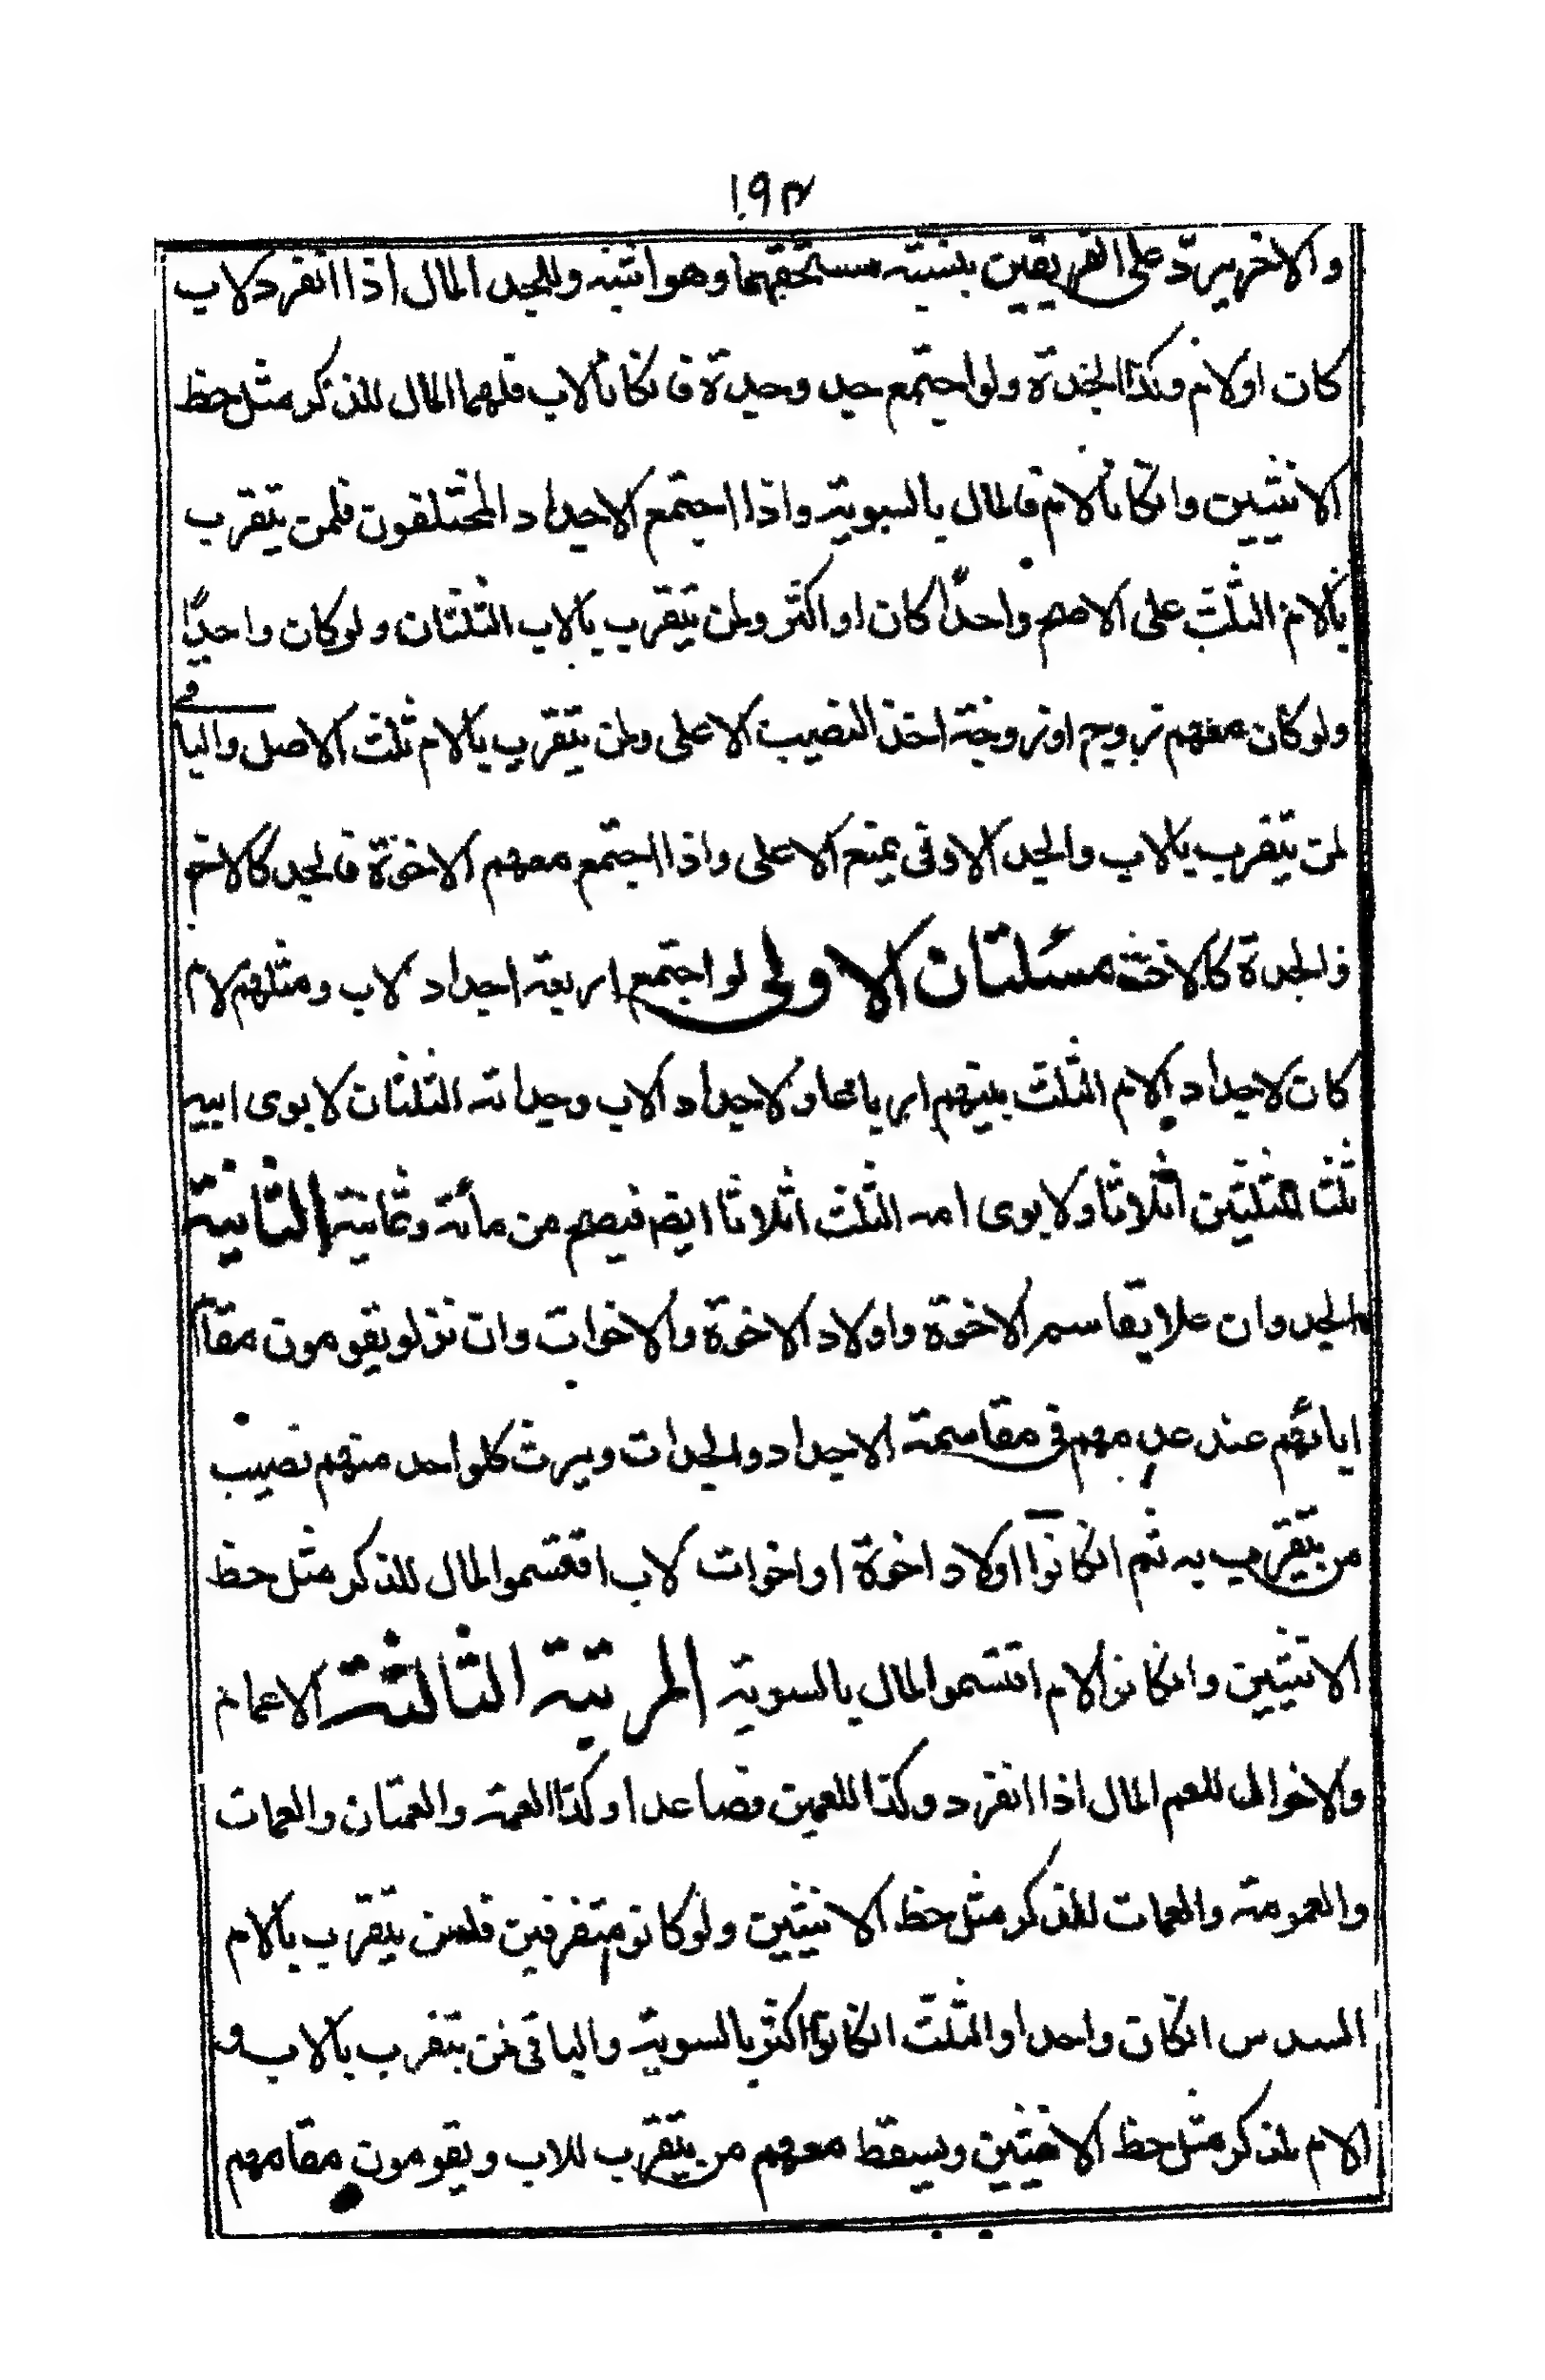 ١٩٣
والاخر يردّ على الفريقين بنسبته مستحقهما وهو اشبه وللجد المال اذا انفرد لاب
كان او لام وكذا الجدة ولو اجتمع جد وجدة فانكانا لاب فلهما المال للذكر مثل حظ
الانثيين وانكانا لام فالمال بالسوية واذا اجتمع الاجداد المختلفون فلمن يتقرب
بالام الثلث على الاصح واحدًا كان او اكثر ولمن يتقرب بالاب الثلثان ولو كان واحدًا
ولو كان معهم زوج او زوجة اخذ النصيب الاعلى ولمن يتقرب بالام ثلث الاصل والباقي
لمن يتقرب بالاب والجد الادنى يمنع الاعلى واذا اجتمع معهم الاخوة فالجد كالاخ
والجدة كالاخت مسئلتان الاولى لو اجتمع اربعة اجداد لاب ومثلهم لام
كان لاجداد الام الثلث بينهم ارباعا ولاجداد الاب وجداته الثلثان لابوى ابيه
ثلث الثلثين اثلاثا ولابوى امه الثلث اثلاثا ايضا فيصح من مائة وثمانية الثانية
الجد وان علا يقاسم الاخوة واولاد الاخوة والاخوات وان نزلو يقومون مقام
ابائهم عند عدمهم في مقاسمة الاجداد والجدات ويرث كلواحد منهم نصيب
من يتقرب به ثم انكانوا اولاد اخوة او اخوات لاب اقتسموا المال للذكر مثل حظ
الانثيين وانكانو لام اقتسموا المال بالسوية المرتبة الثالثة الاعمام
والاخوال للعم المال اذا انفرد وكذا للعمين فصاعدا وكذا العمة والعمتان والعمات
والعمومة والعمات للذكر مثل حظ الانثيين ولو كانو متفرقين فلمن يتقرب بالام
السدس انكان واحدا والثلث انكانوا اكثر بالسوية والباقى لمن يتقرب بالاب و
الام للذكر مثل حظ الانثيين ويسقط معهم من يتقرب للاب ويقومون مقامهم